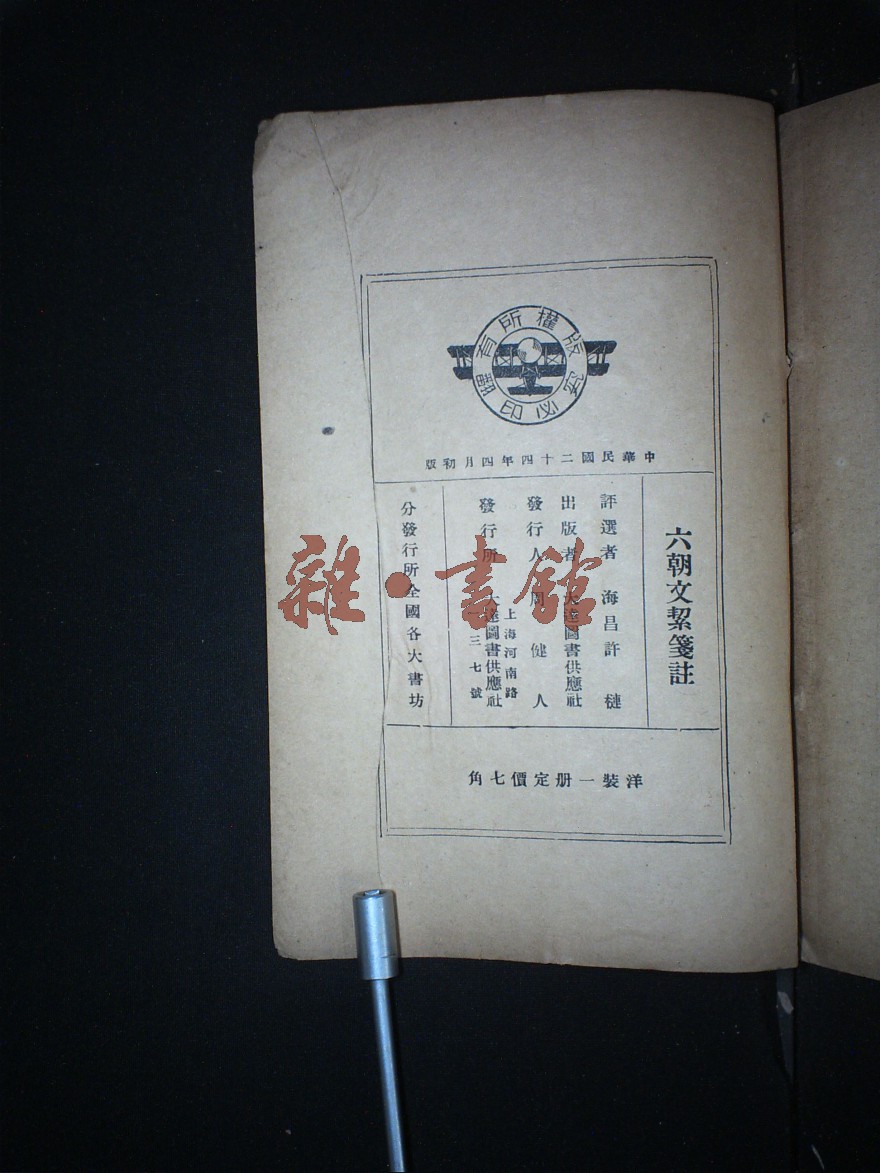 版權所有
翻印必究
中華民國二十四年四月初版
六朝文絜箋註
評選者　海昌許槤
出版者　大達圖書供應社
發行人　周健人
發行所　大達圖書供應社
上海河南路
三一七號
分發行所全國各大書坊
洋裝一册定價七角
雜·書館